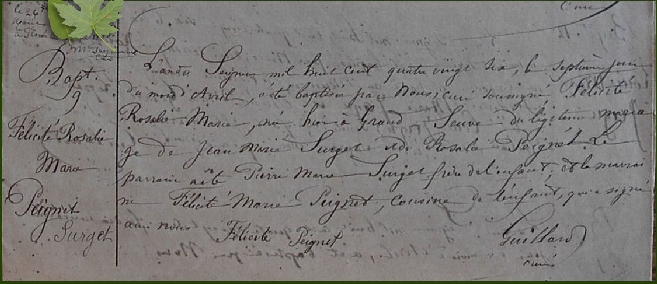 Bapt.
9
Félicité Rosalie
Marie
Peignet
Surget
L'an du Seigneur mil huit cent quatre vingt six, le septième jour
du mois d'Avril, a été baptisée par Nous, curé soussigné Félicité
Rosalie Marie, née hier à Grand du légitime maria
ge de Jean Marie Surget et de Rosalie Peignet. Le
parrain a été Pierre Marie Surget frère de l'enfant, et la marrai
ne Félicité Marie Peignet, cousine de l'enfant, qui a signé
avec nous Félicité Peignet Guillard